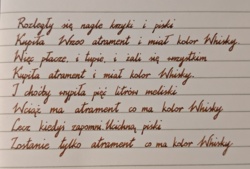 Rozległy się nagle krzyki i piski
Kupiła Wrzos atrament i miał kolor Whisky.
Więc płacze, i lupie, i żali się wszystkim
Kupiła atrament i miał kolor Whisky.
I choćby wypiła pięć litrów meliski
Wciąż ma atrament co ma kolor Whisky.
Lecz kiedyś zapomni. Ucichną piski
Zostanie tylko atrament co ma kolor Whisky